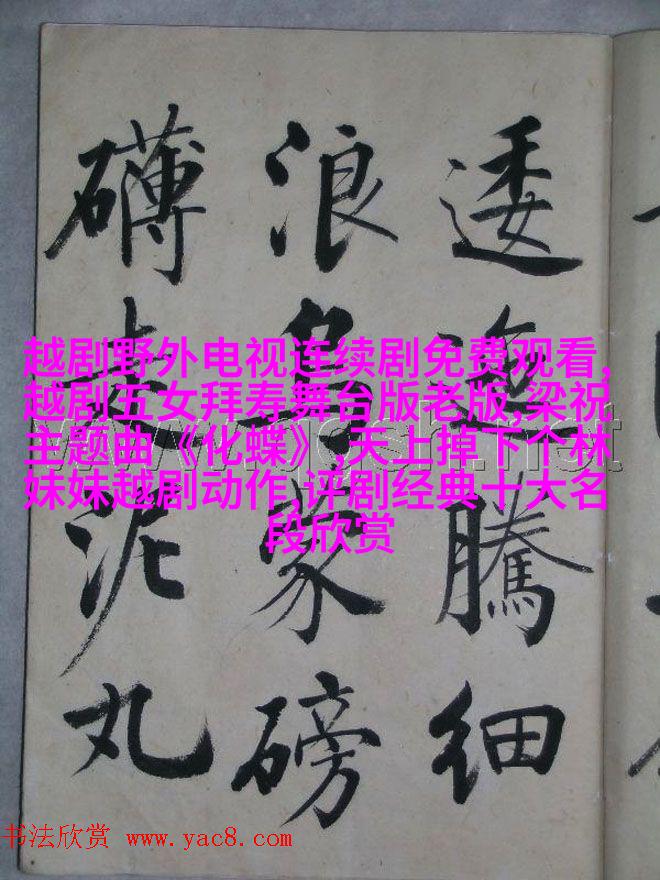 逶迤騰细
浪乌蒙磅
礴走泥丸
越剧野外电视连续剧免费观看,
越剧五女拜寿舞台版老版,梁祝
主题曲《化蝶》,天上掉下个林
妹妹越剧动作,评剧经典十大名
段欣赏
书法欣赏 www.yac8.com